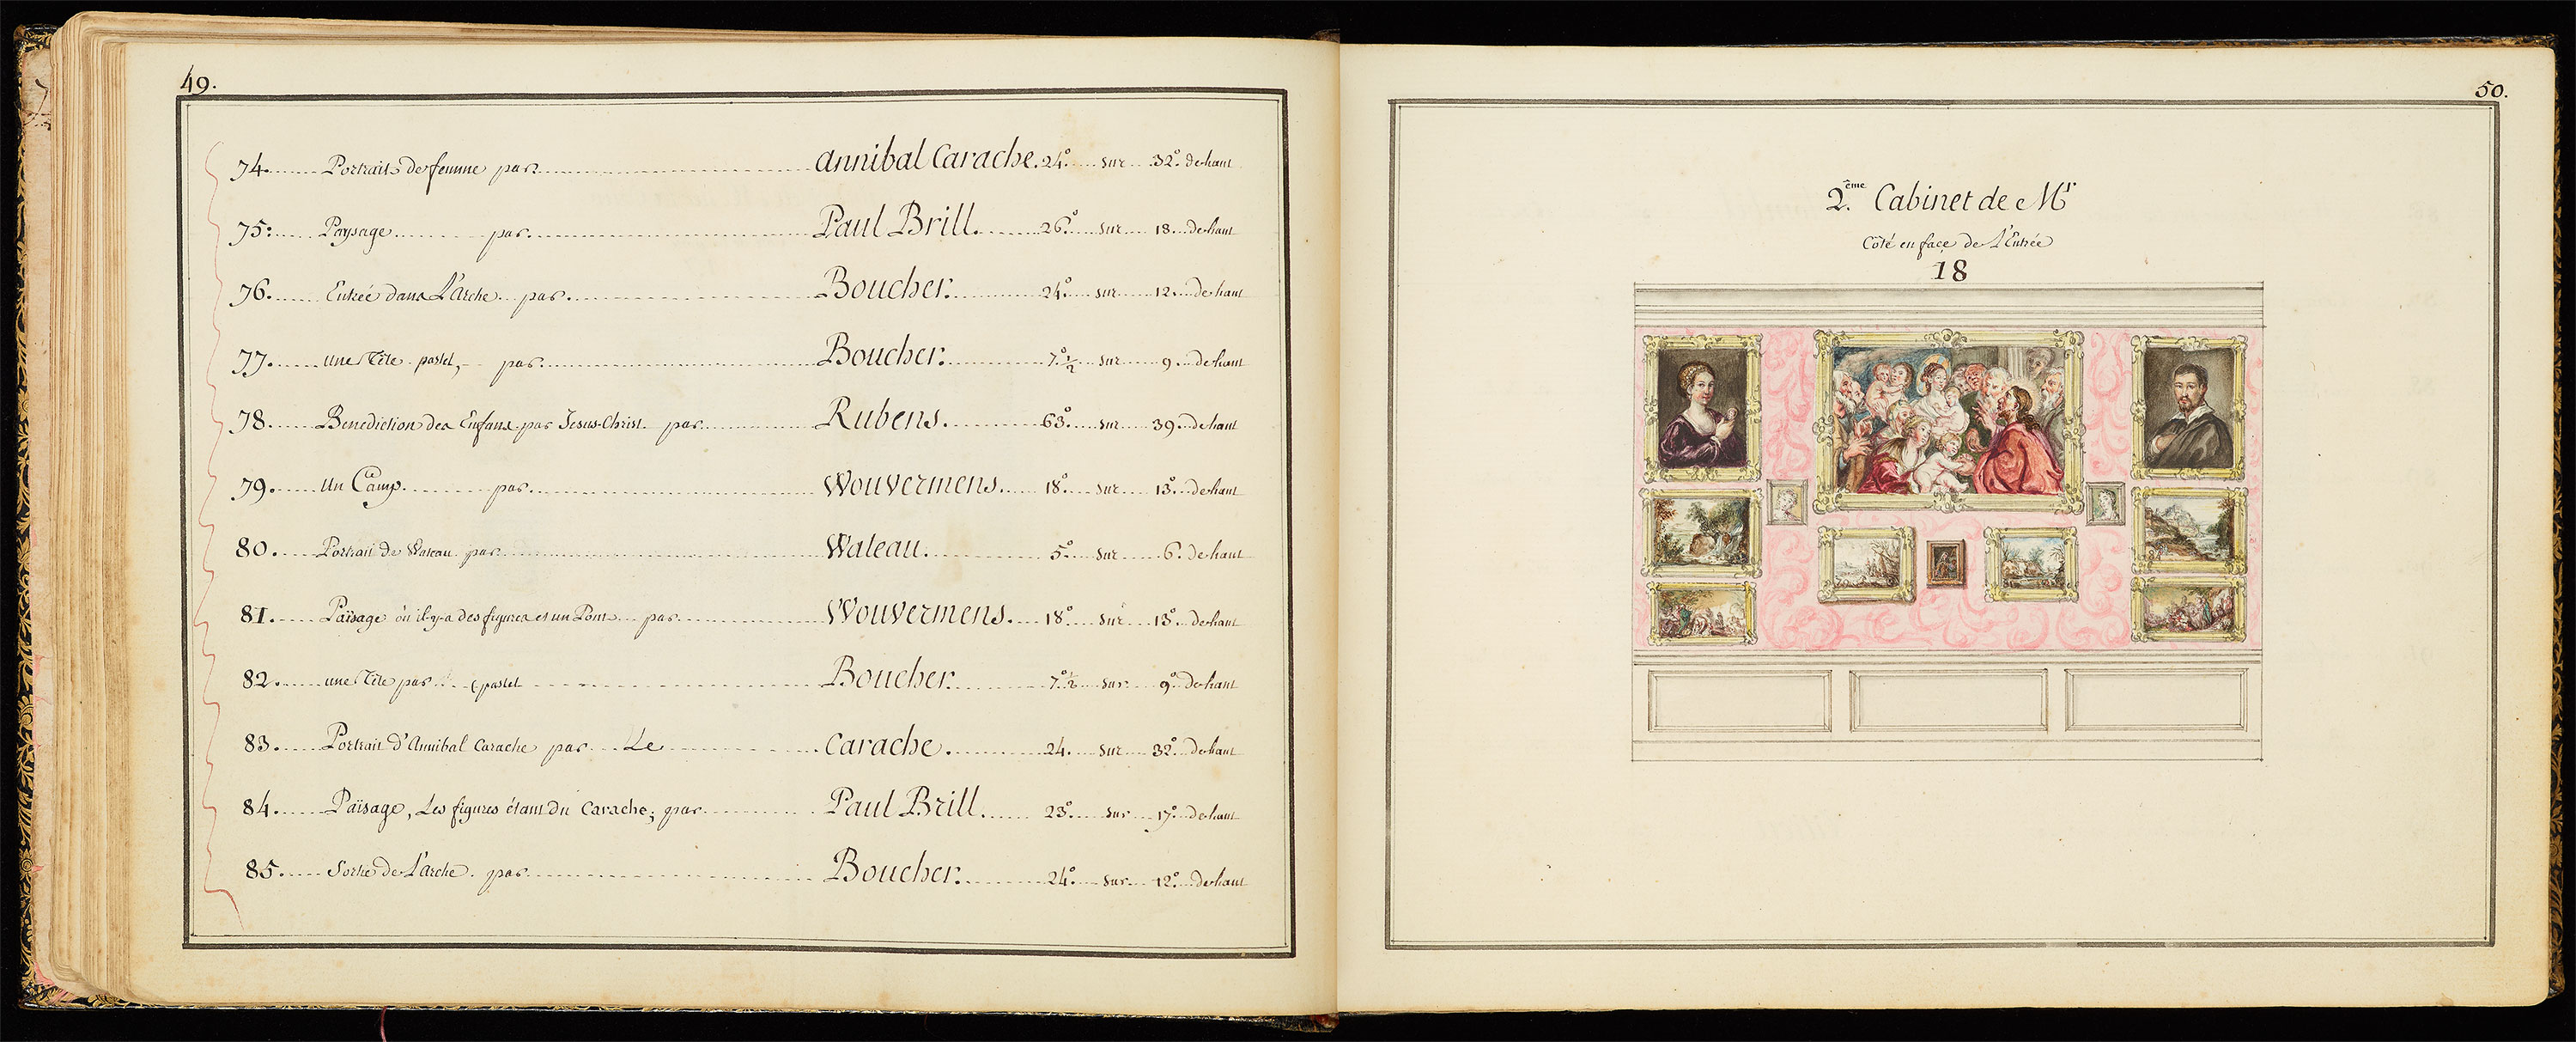 49.
74. Portrait de femme par Annibal Carache. 24° sur 32° de haut
75. Paysage par Paul Brill. 26° sur 18. de haut
76. Entrée dans L'arche par Boucher. 24° sur 12. de haut
77. une Tête pastel, par Boucher. 7° 1/2 sur 9. de haut
78. Benediction des Enfans par Jesus-Christ par Rubens. 63° sur 39. de haut
79. un Camp. par Wouvermens. 18° sur 13° de haut
80. Portrait de Wateau par Wateau. 5° sur 6. de haut
81. Païsage où il-y-a des figures et un Pont par Wouvermens. 18° sur 13° de haut
82. une Tête par pastel Boucher. 7° 1/2 sur 9° de haut
83. Portrait d'Annibal Carache par Le Carache. 24. sur 32° de haut
84. Païsage, Les figures étant du Carache; par Paul Brill. 23° sur 17° de haut
85. Sortie de L'arche par Boucher. 24° sur 12° de haut
50.
2.ème Cabinet de Mr
Côté en face de L'Entrée
18